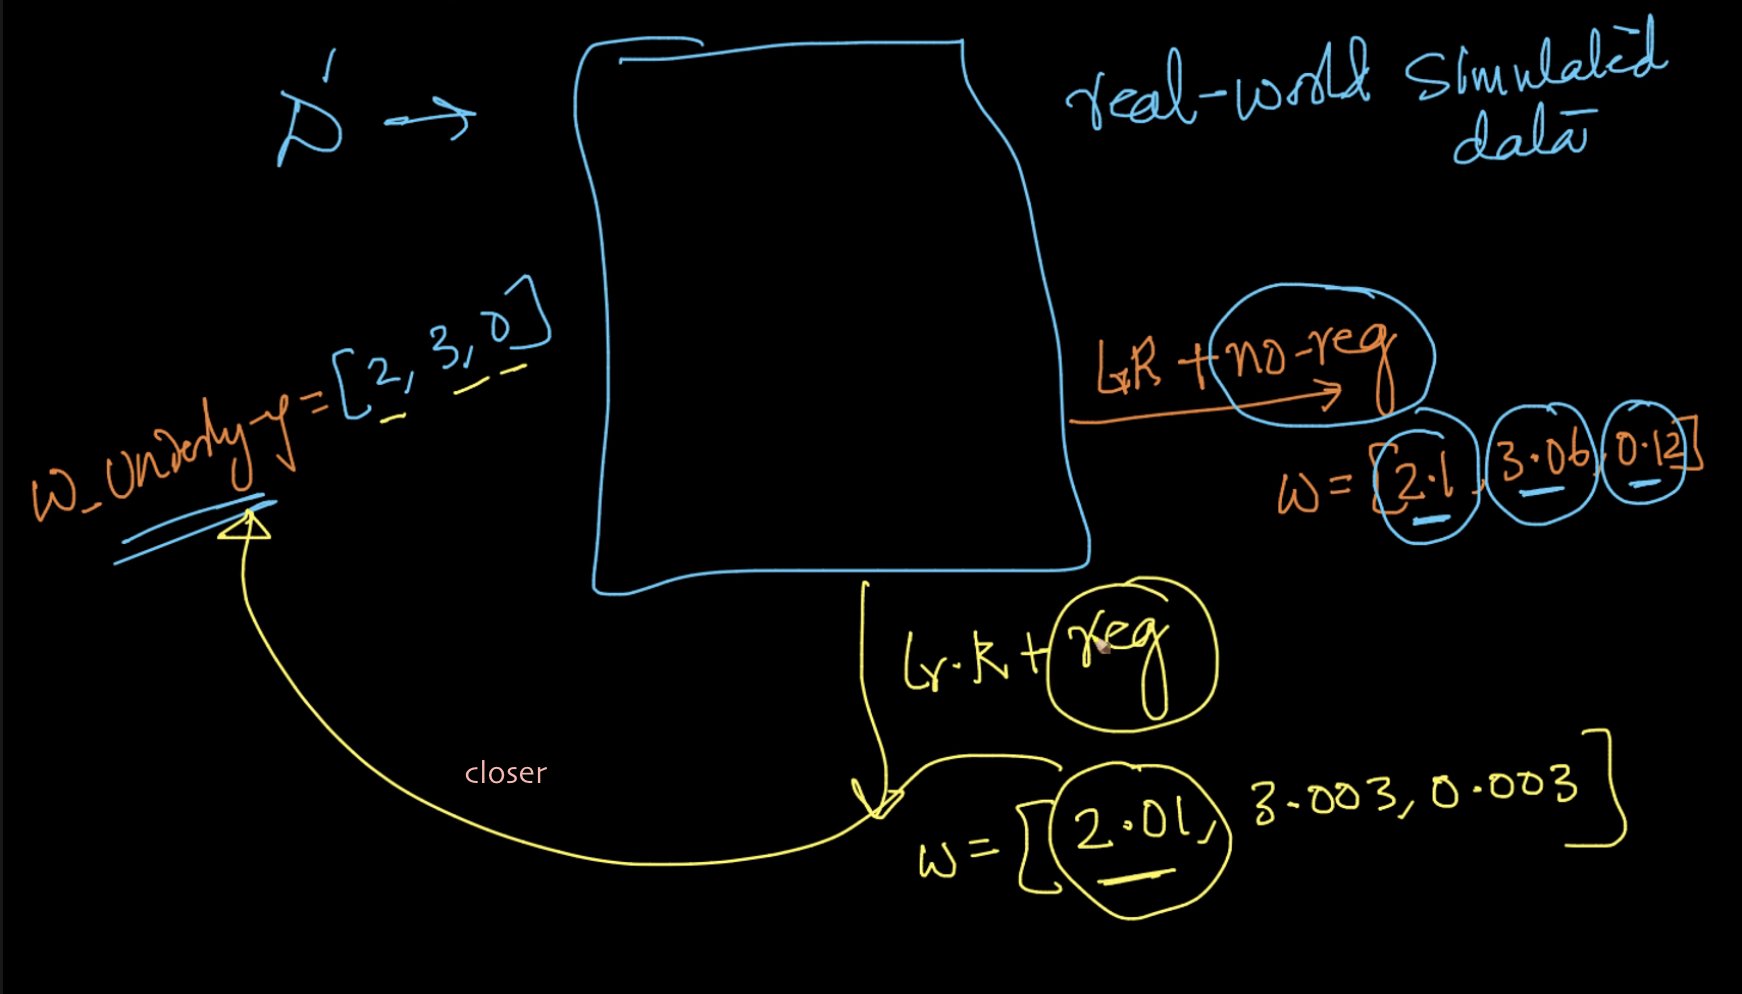 D' →
real-world simulated
data
w_underlying = [2, 3, 0]
LR + no-reg
w = [2.1, 3.06, 0.12]
Lr.R + reg
closer
w = [2.01, 3.003, 0.003]